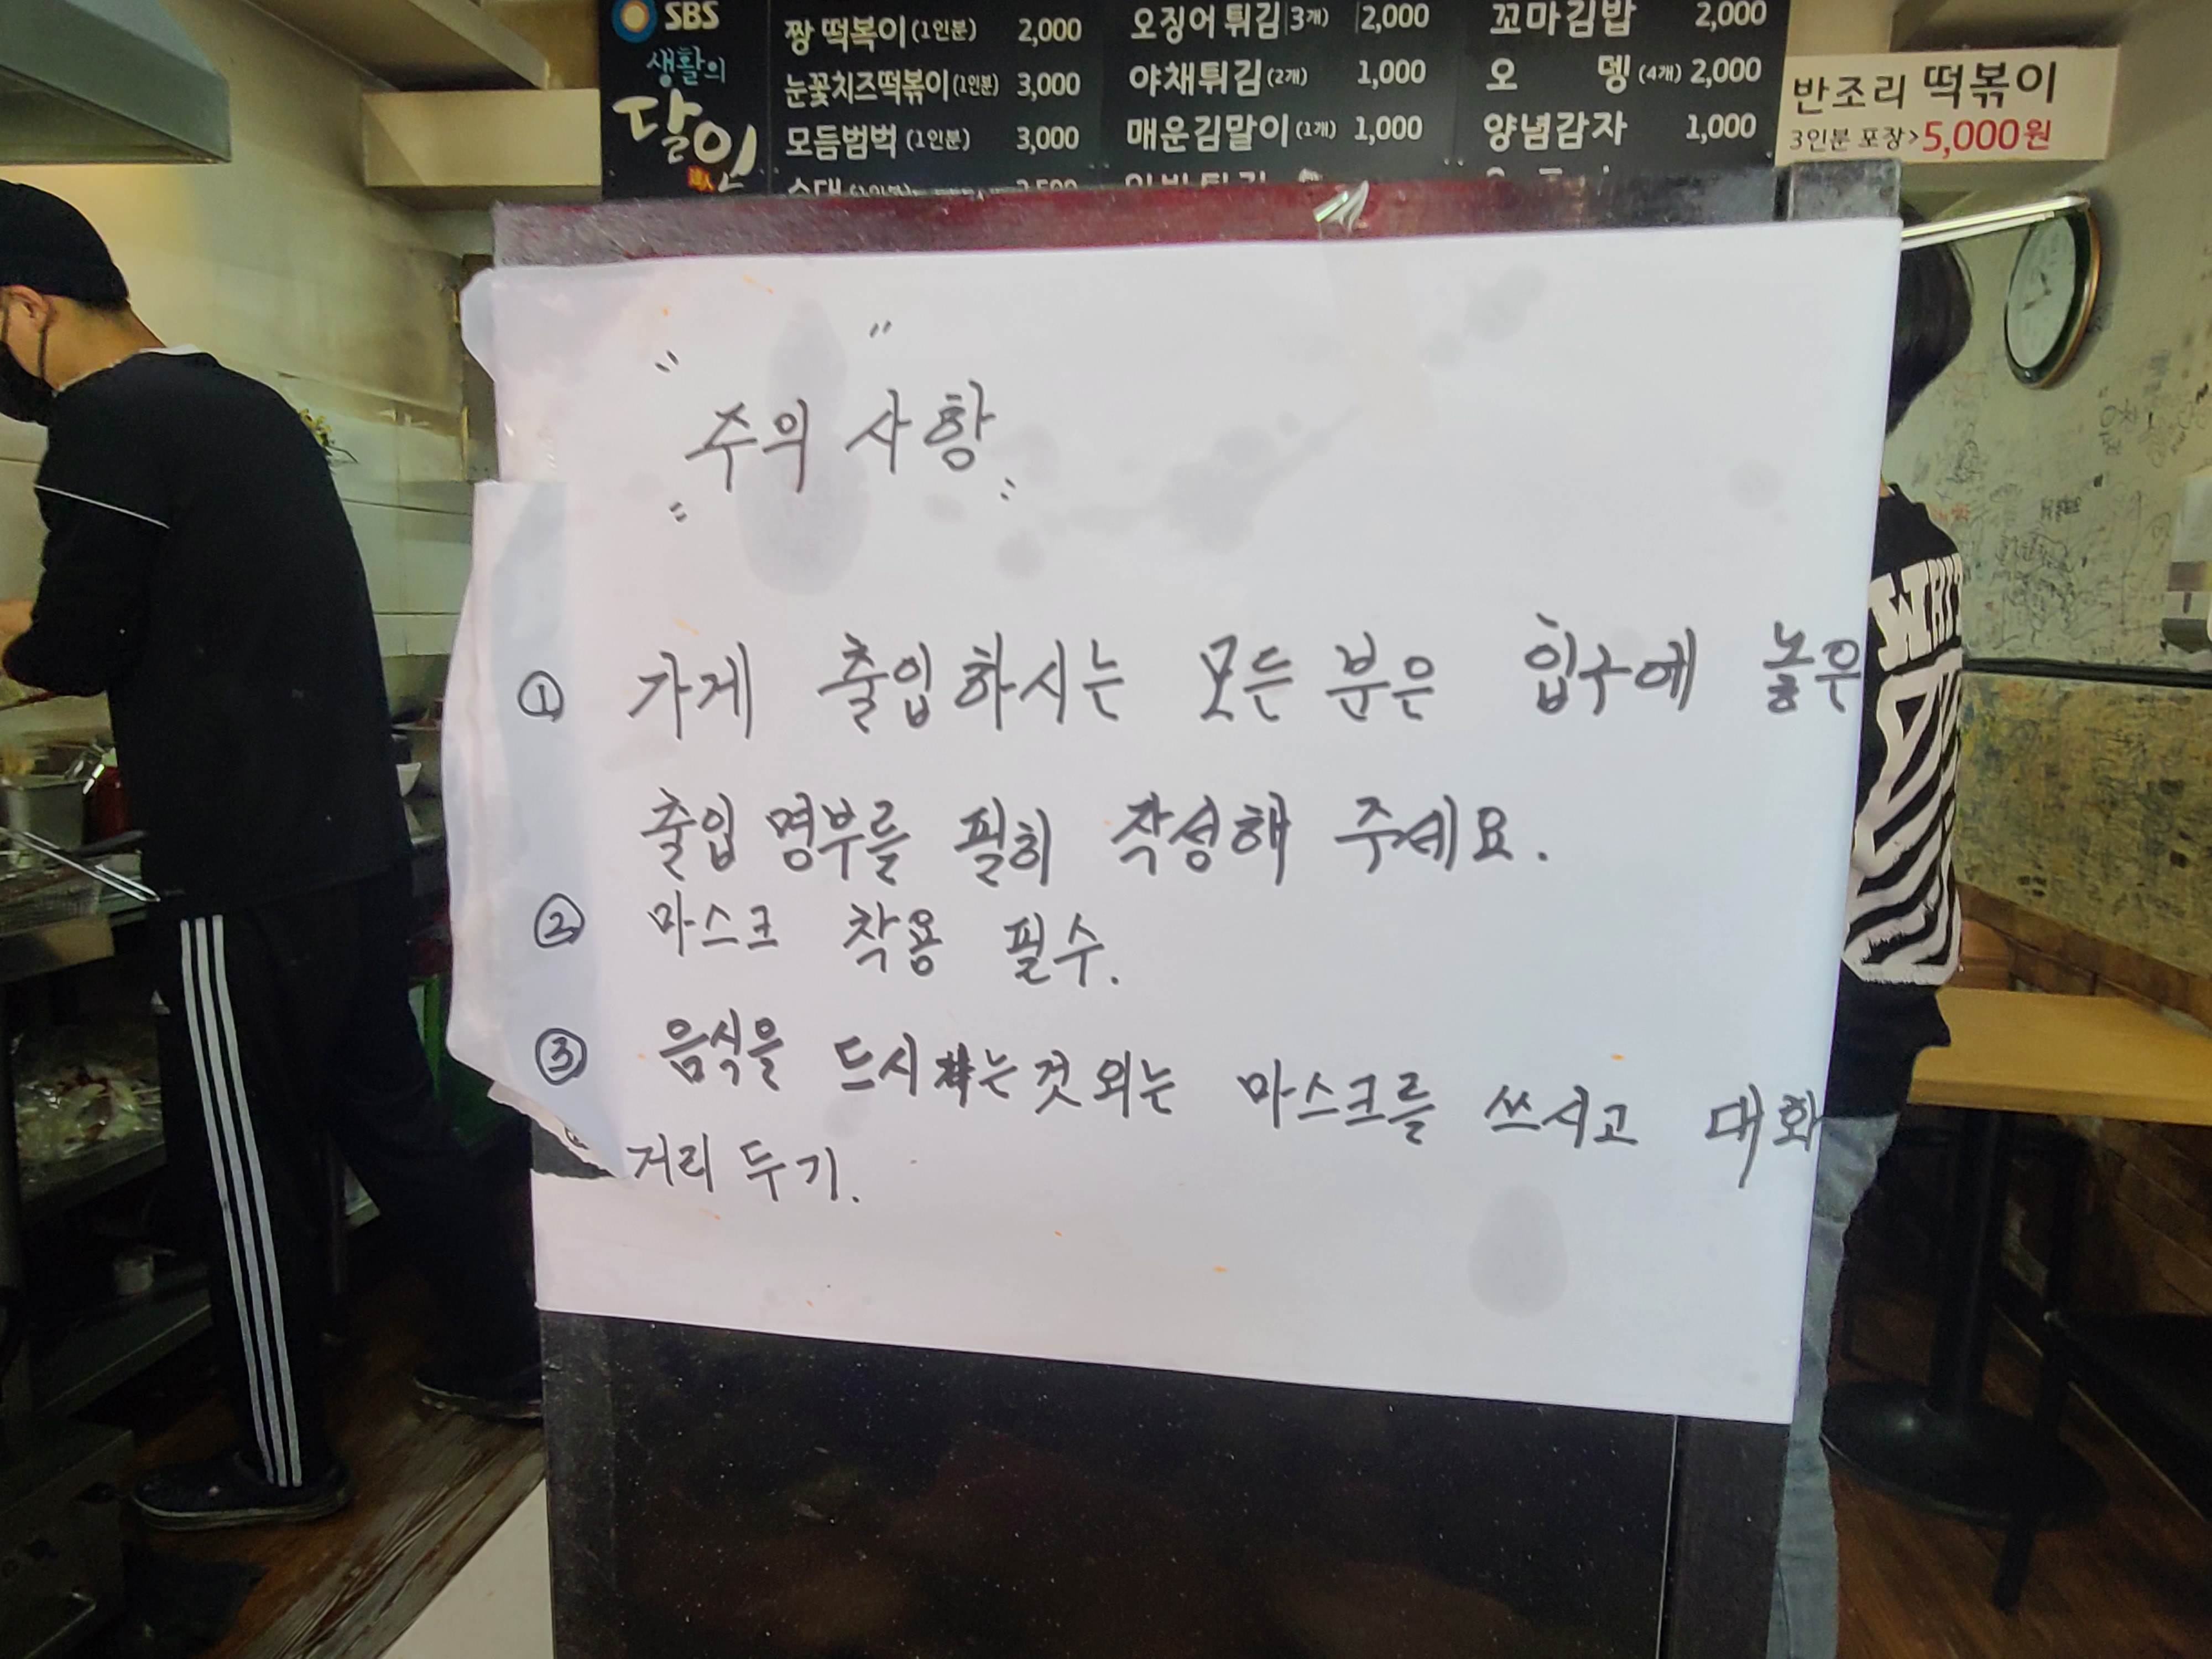 SBS
생활의
달인
짱 떡볶이 (1인분) 2,000
눈꽃치즈떡볶이 (1인분) 3,000
모듬범벅 (1인분) 3,000
오징어 튀김 (3개) 2,000
야채튀김 (2개) 1,000
매운김말이 (1개) 1,000
꼬마김밥 2,000
오 뎅 (4개) 2,000
양념감자 1,000
반조리 떡볶이
3인분 포장> 5,000원
주의 사항
① 가게 출입하시는 모든 분은 입구에 놓은
출입 명부를 필히 작성해 주세요.
② 마스크 착용 필수.
③ 음식을 드시는것 외는 마스크를 쓰시고 대화
거리 두기.